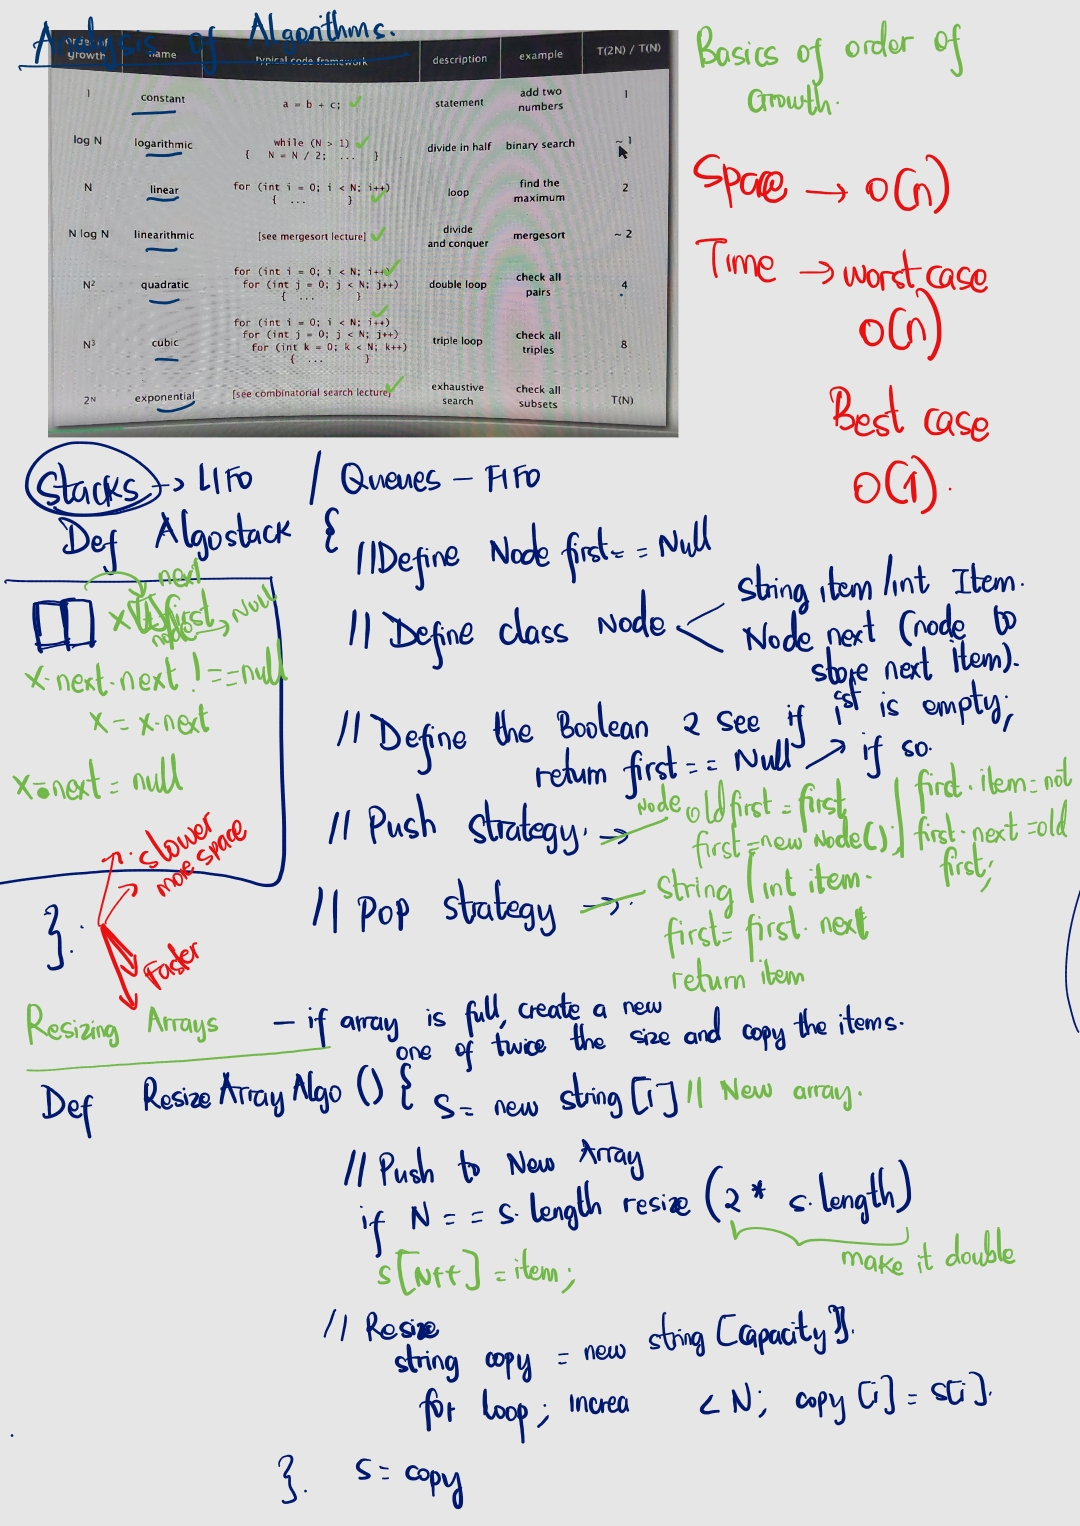 Analysis of Algorithms.
order of growth name typical code framework description example T(2N) / T(N)
1 constant a = b + c; statement add two numbers 1
log N logarithmic while (N > 1) { N = N / 2; ... } divide in half binary search ~ 1
N linear for (int i = 0; i < N; i++) { ... } loop find the maximum 2
N log N linearithmic [see mergesort lecture] divide and conquer mergesort ~ 2
N² quadratic for (int i = 0; i < N; i++) for (int j = 0; j < N; j++) { ... } double loop check all pairs 4
N³ cubic for (int i = 0; i < N; i++) for (int j = 0; j < N; j++) for (int k = 0; k < N; k++) { ... } triple loop check all triples 8
2ᴺ exponential [see combinatorial search lecture] exhaustive search check all subsets T(N)
Basics of order of
Growth.
Space → O(n)
Time → worst case
O(n)
Best case
O(1).
Stacks → LIFO / Queues – FIFO
Def Algostack {
//Define Node first == Null
// Define class Node
string item /int Item.
Node next (node to
store next Item).
// Define the Boolean 2 see if 1st is empty;
return first == Null → if so.
// Push strategy. →
Node oldfirst = first
first = new Node();
first.item = not
first.next = old
first;
// Pop strategy →
string / int item.
first = first.next
return item
next
x first
node → Null
x.next.next !== null
x = x.next
x.next = null
slower
more space
}.
Faster
Resizing Arrays – if array is full, create a new
one of twice the size and copy the items.
Def ResizeArrayAlgo () { S = new string [i] // New array.
// Push to New Array
if N == s.length resize (2 * s.length)
make it double
s[N++] = item;
// Resize
string copy = new string [capacity].
for loop; increa < N; copy [i] = s[i].
}. S = copy